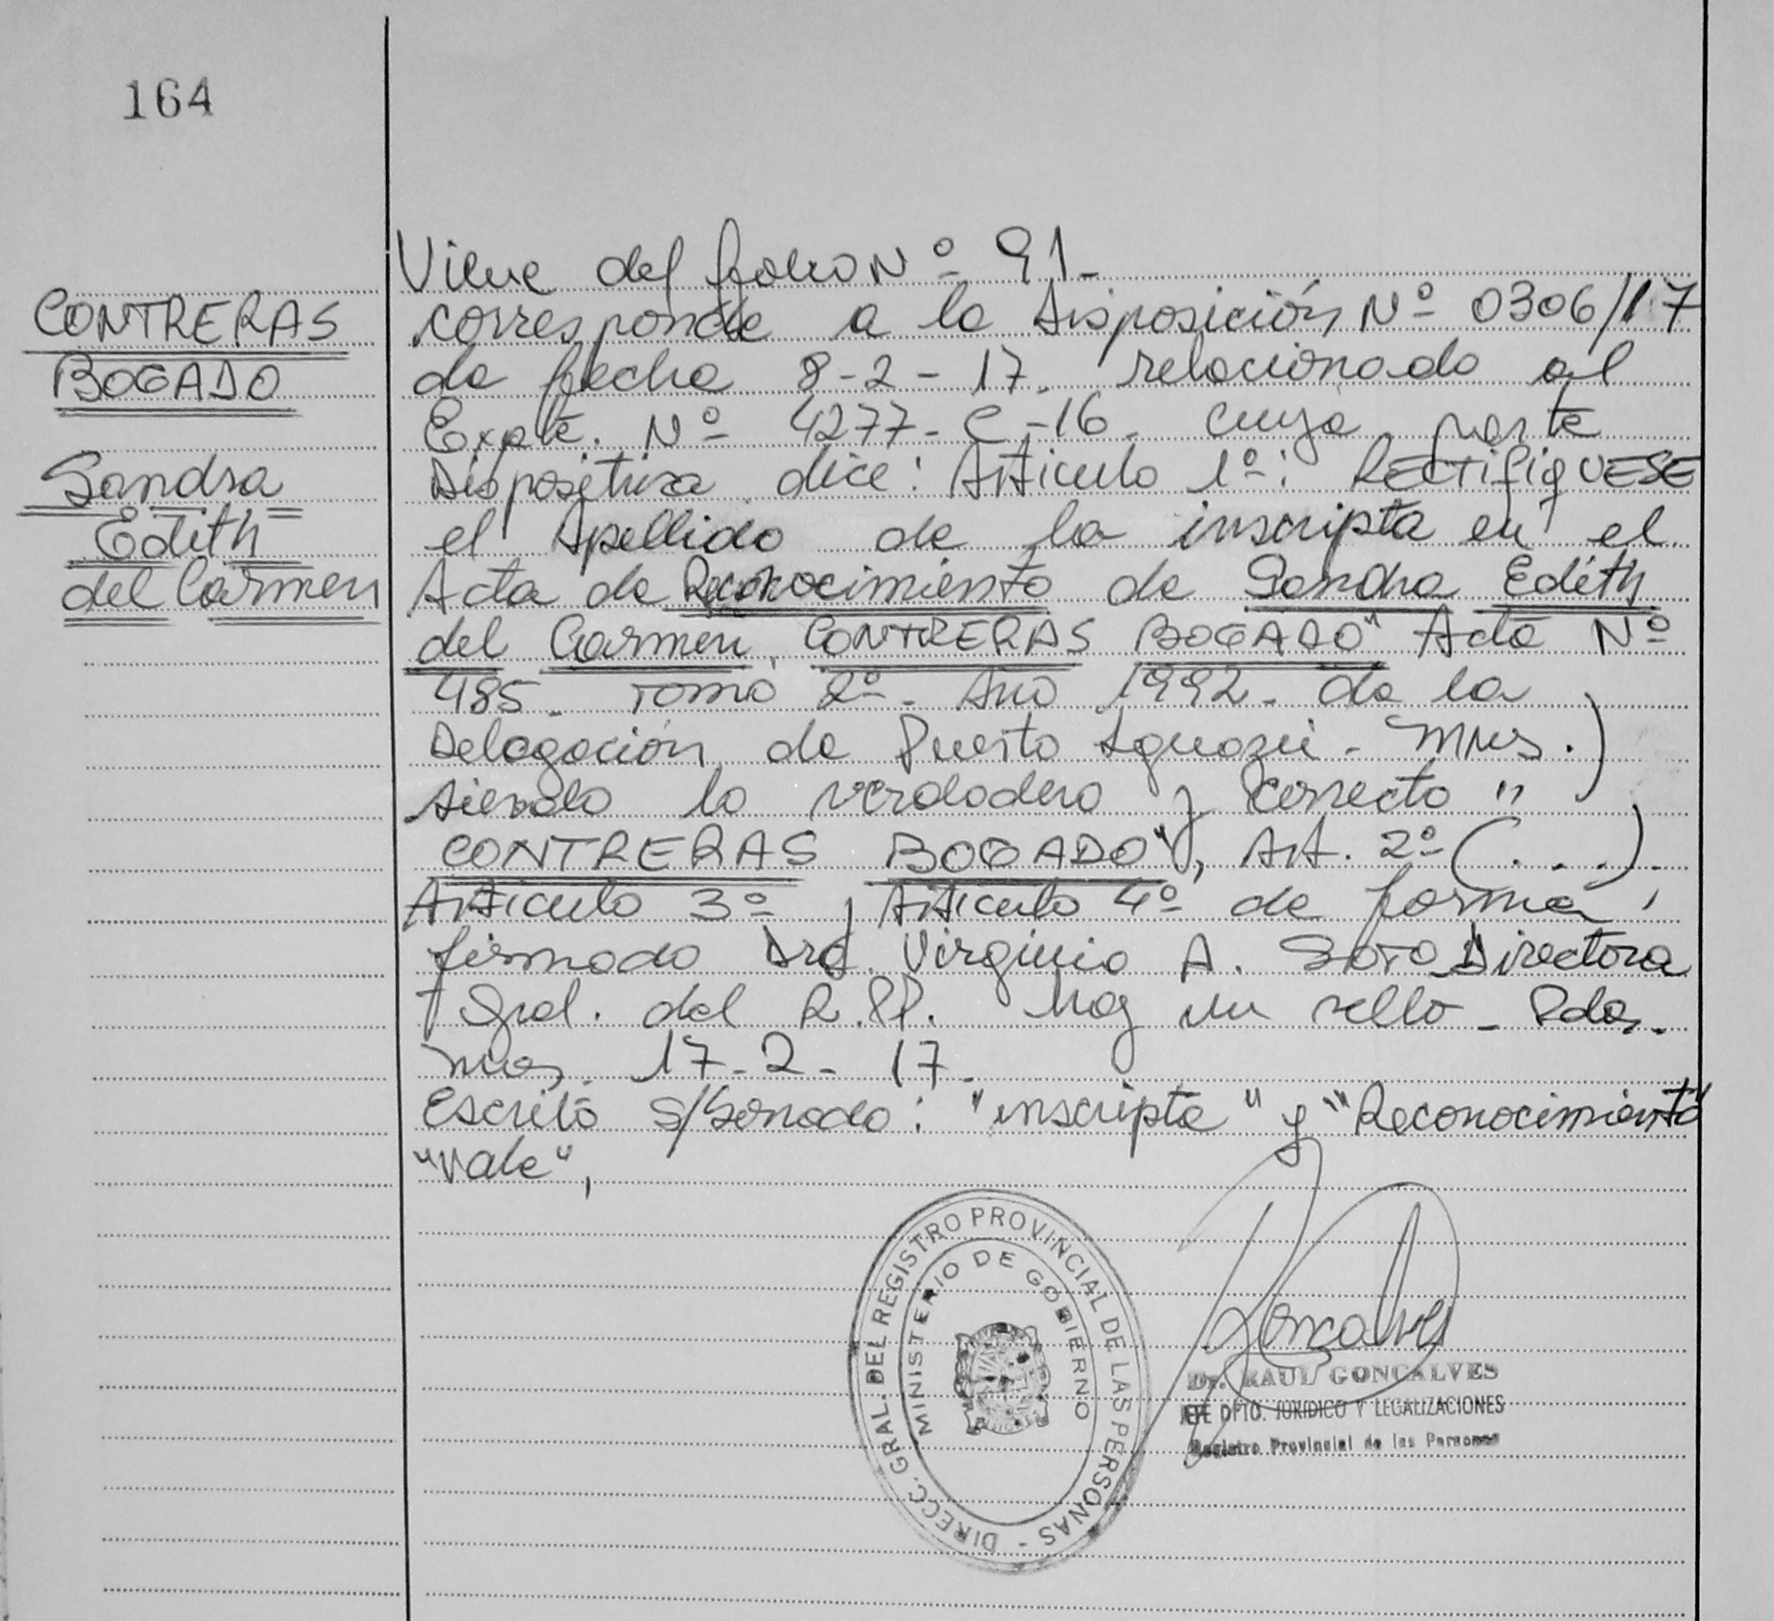 164
CONTRERAS
BOGADO
Sandra
Edith
del Carmen
Viene del folio Nº 91-
corresponde a la Disposición Nº 0306/17
de fecha 8-2-17. relacionado al
Expte. Nº 4277-C-16. cuya parte
Dispositiva dice: Articulo 1º: RECTIFIQUESE
el Apellido de la inscripta en el
Acta de Reconocimiento de Sandra Edith
del Carmen, CONTRERAS BOGADO" Acta Nº
485. Tomo 2º. Año 1992. de la
Delegación de Puerto Iguazú - Mnes.)
siendo lo verdadero y correcto "
CONTRERAS BOGADO", Art. 2º (...).
Articulo 3º y Articulo 4º de forma,
firmado Dra. Virginia A. Soto Directora
Gral. del R.PP. hay un sello - Pdas.
Mnes. 17-2-17.
Escrito s/borrado: "inscripta" y "Reconocimiento
"vale",
DIRECC. GRAL. DEL REGISTRO PROVINCIAL DE LAS PERSONAS -
MINISTERIO DE GOBIERNO
Goncalves
Dr. RAUL GONCALVES
JEFE DPTO. JURIDICO Y LEGALIZACIONES
Registro Provincial de las Personas